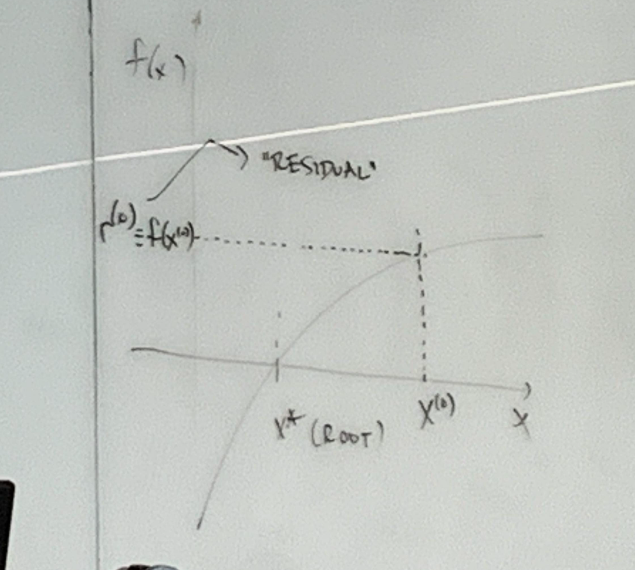 f(x)
"RESIDUAL"
r⁽⁰⁾≡f(x⁽⁰⁾)
x* (ROOT)
x⁽⁰⁾
x